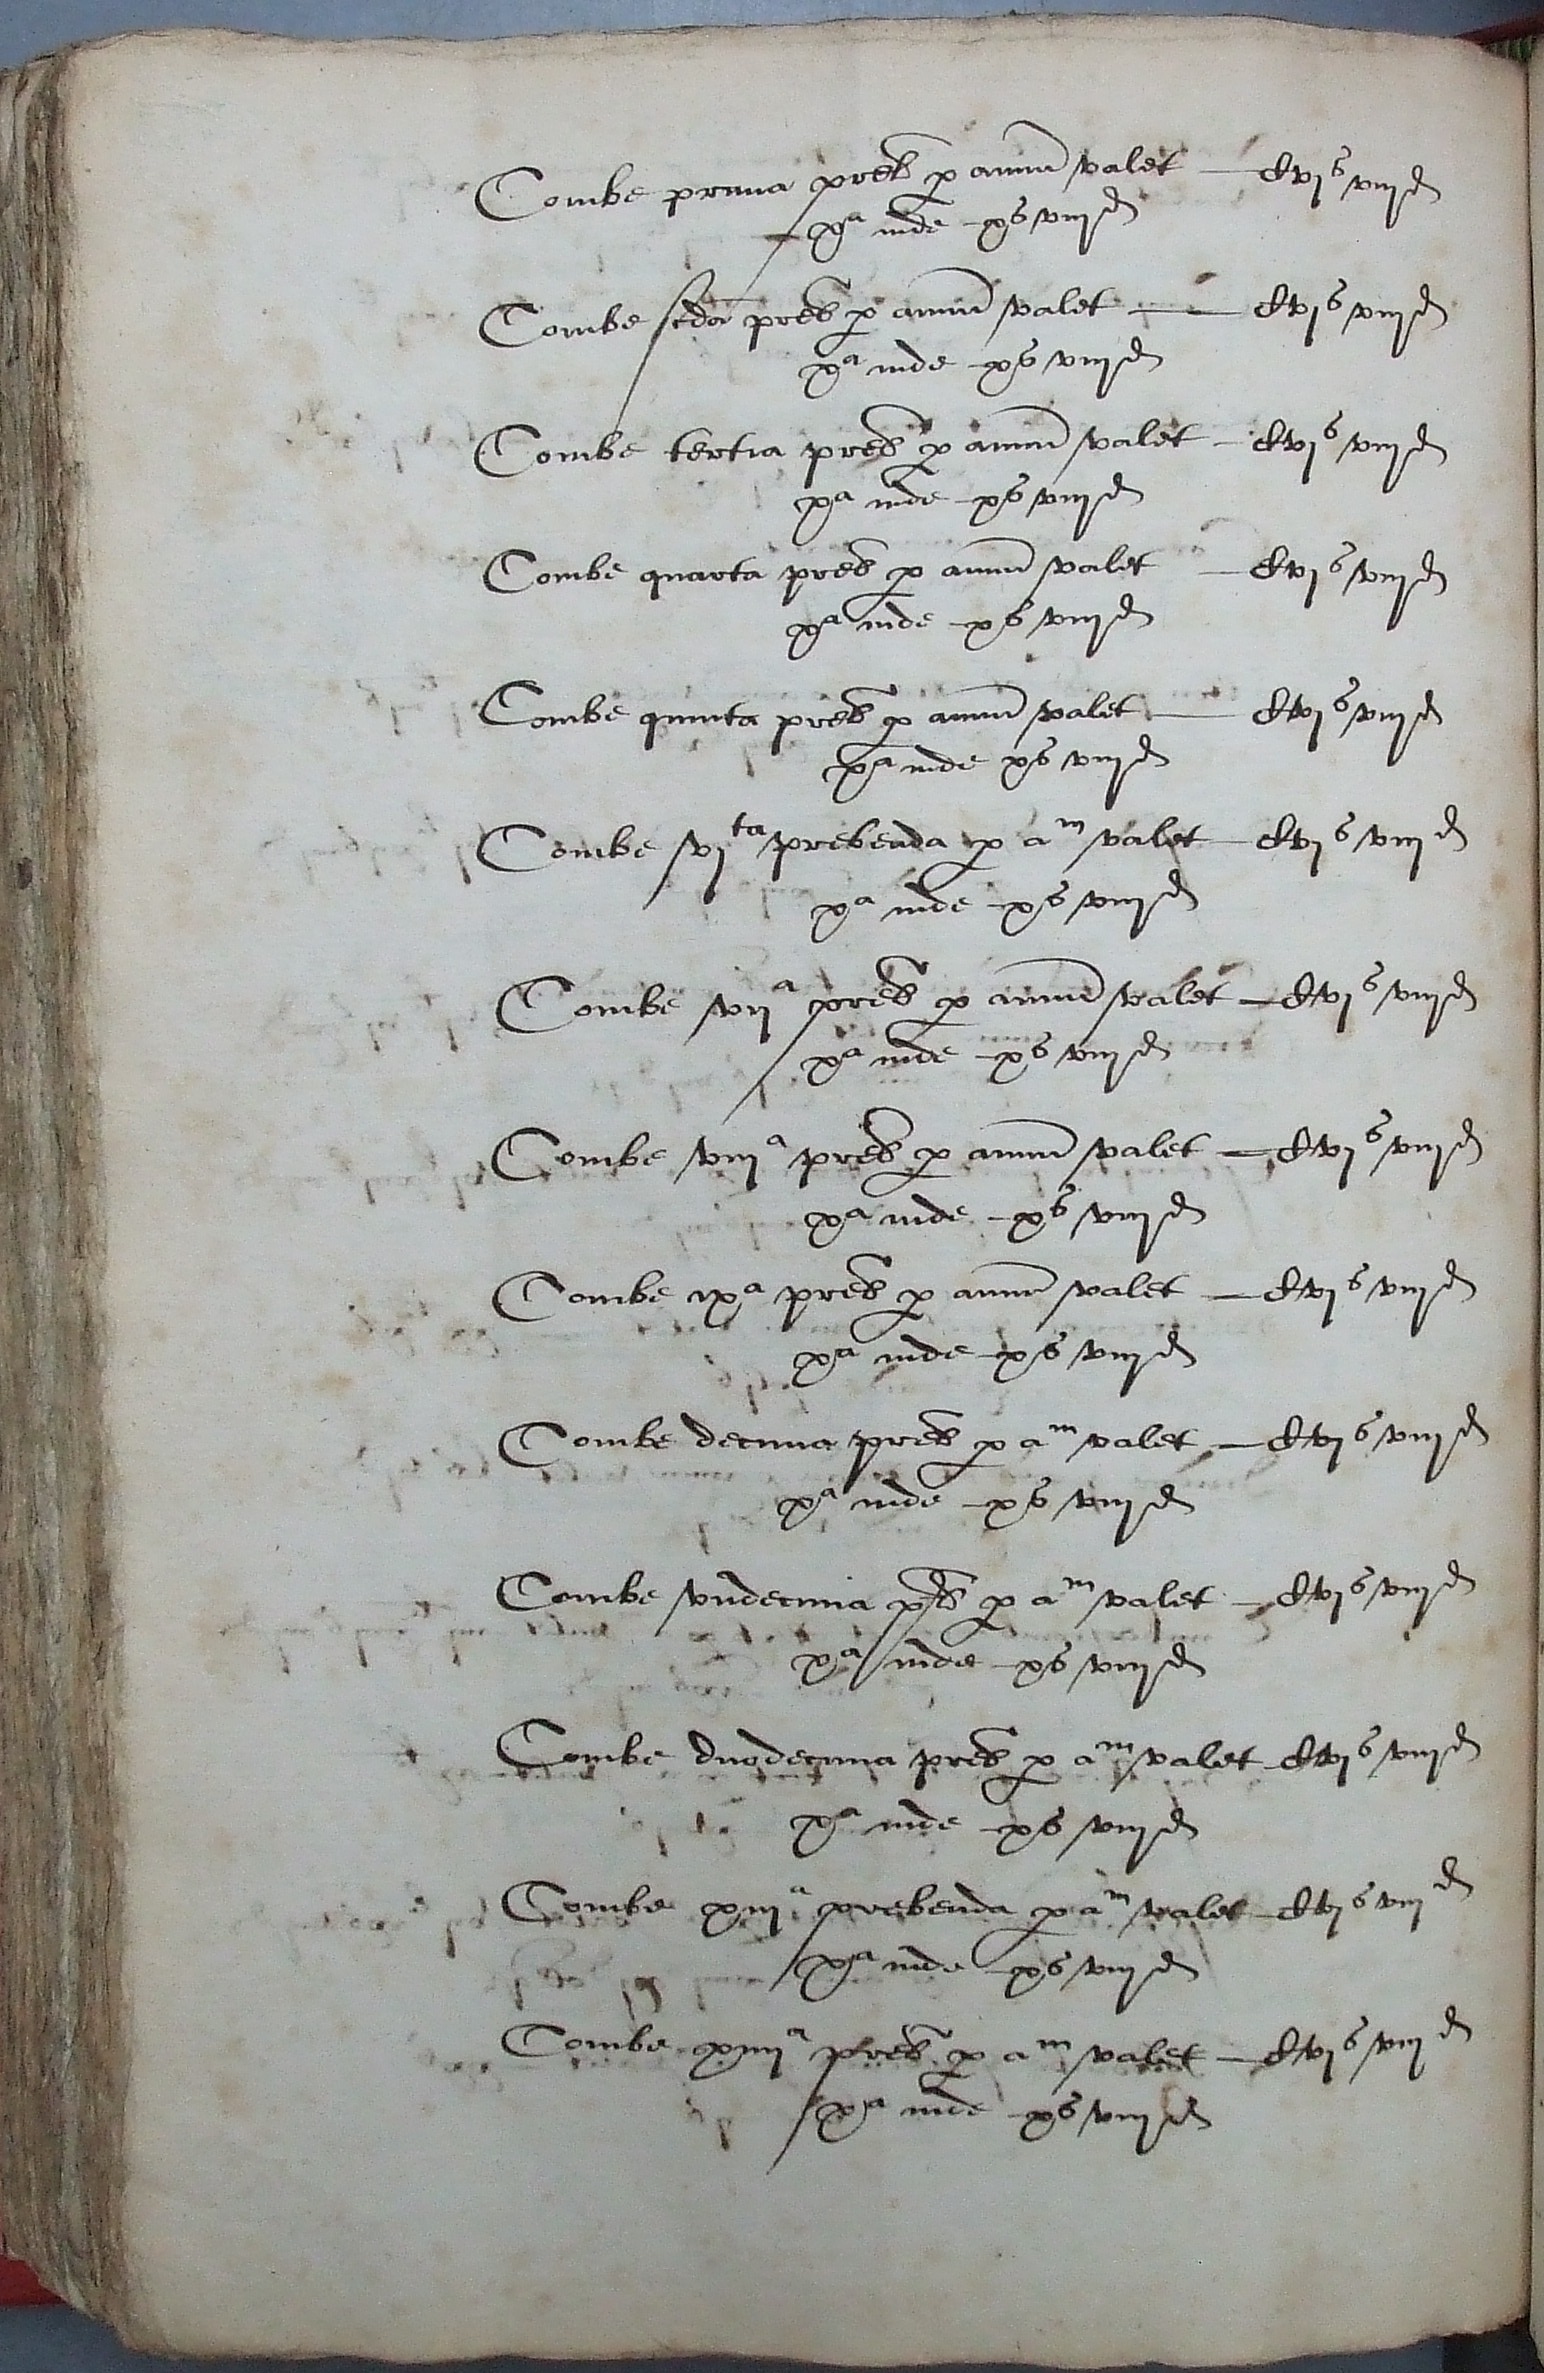 Combe prima preb p annu valet — Cvjs viijd
xa inde xs viijd
Combe scda preb p annu valet — Cvjs viijd
xa inde xs viijd
Combe tertia preb p annu valet — Cvjs viijd
xa inde xs viijd
Combe quarta preb p annu valet — Cvjs viijd
xa inde xs viijd
Combe quinta preb p annu valet — Cvjs viijd
xa inde xs viijd
Combe vjta prebenda p am valet — Cvjs viijd
xa inde xs viijd
Combe vija preb p annu valet — Cvjs viijd
xa inde xs viijd
Combe viija preb p annu valet — Cvjs viijd
xa inde xs viijd
Combe ixa preb p annu valet — Cvjs viijd
xa inde xs viijd
Combe decima preb p am valet — Cvjs viijd
xa inde xs viijd
Combe vndecima pb p am valet — Cvjs viijd
xa inde xs viijd
Combe duodecima preb p am valet — Cvjs viijd
xa inde xs viijd
Combe xiija prebenda p am valet — Cvjs viijd
xa inde xs viijd
Combe xiiija preb p am valet — Cvjs viijd
xa inde xs viijd